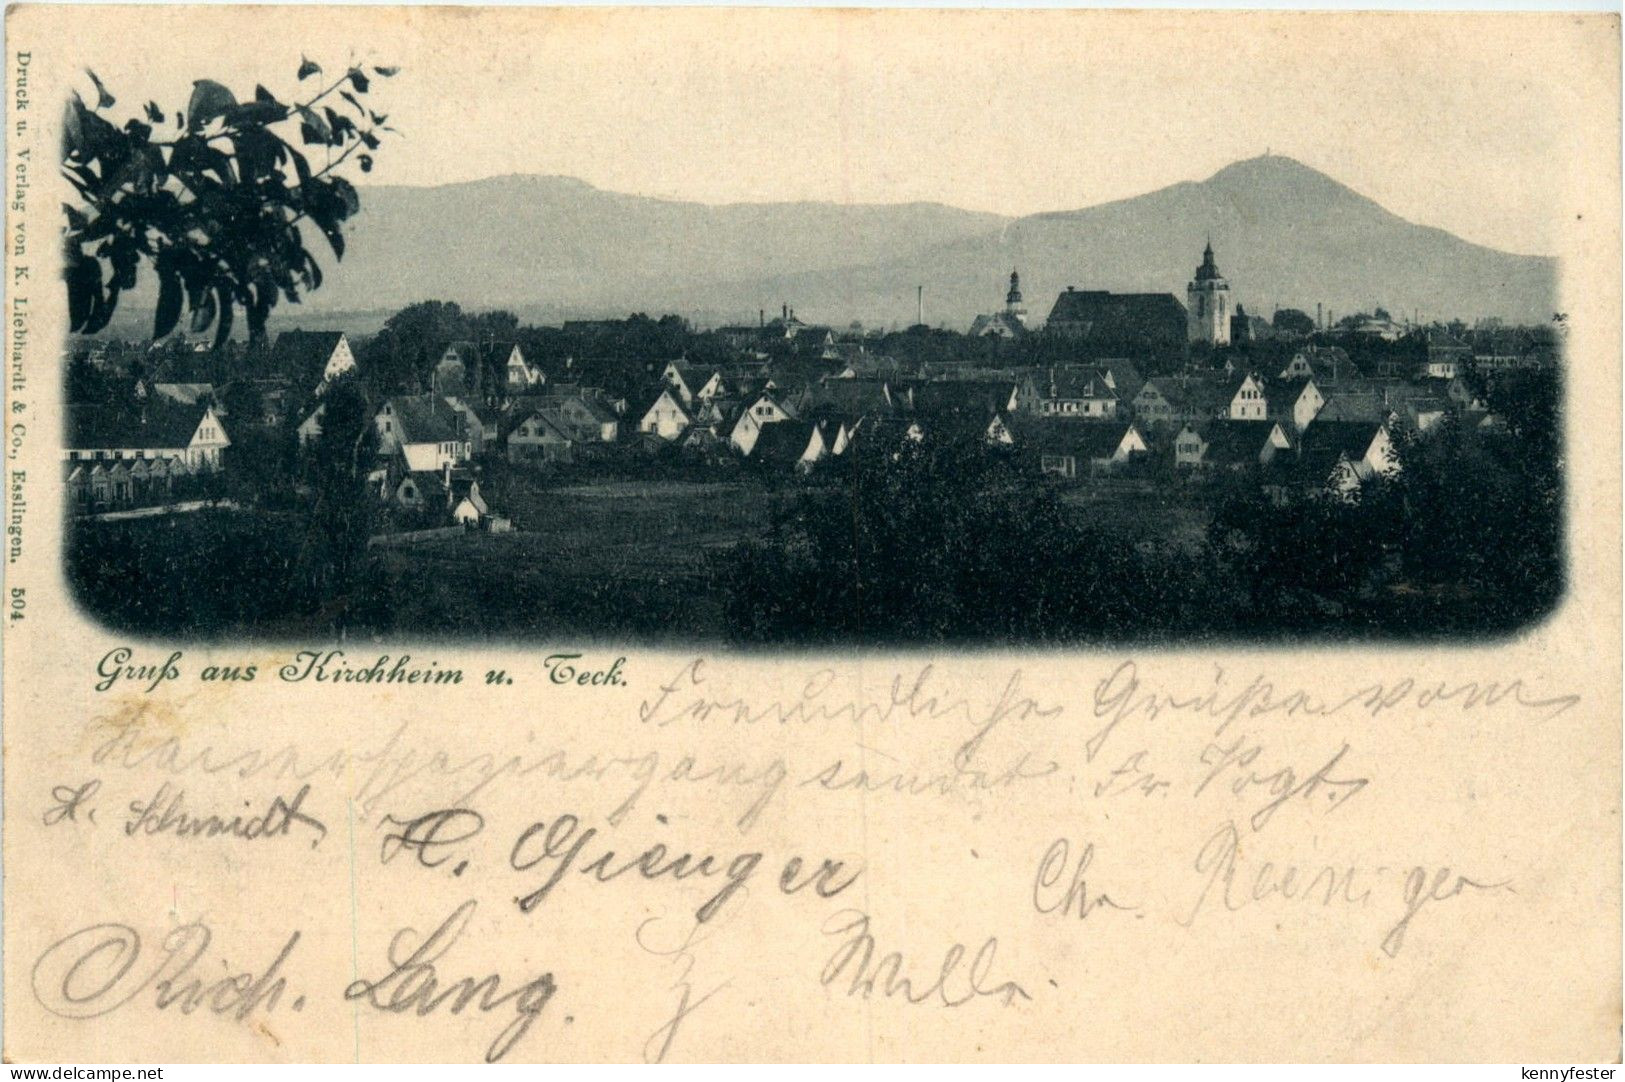 Druck u. Verlag von K. Liebhardt & Co., Esslingen. 504.
Gruß aus Kirchheim u. Teck.
Freundliche Grüße vom
Kaiserspaziergang sendet: Fr. Vogt.
H. Schmidt H. Gienger
Chr. Reiniger
Rich. Lang.
www.delcampe.net
kennyfester